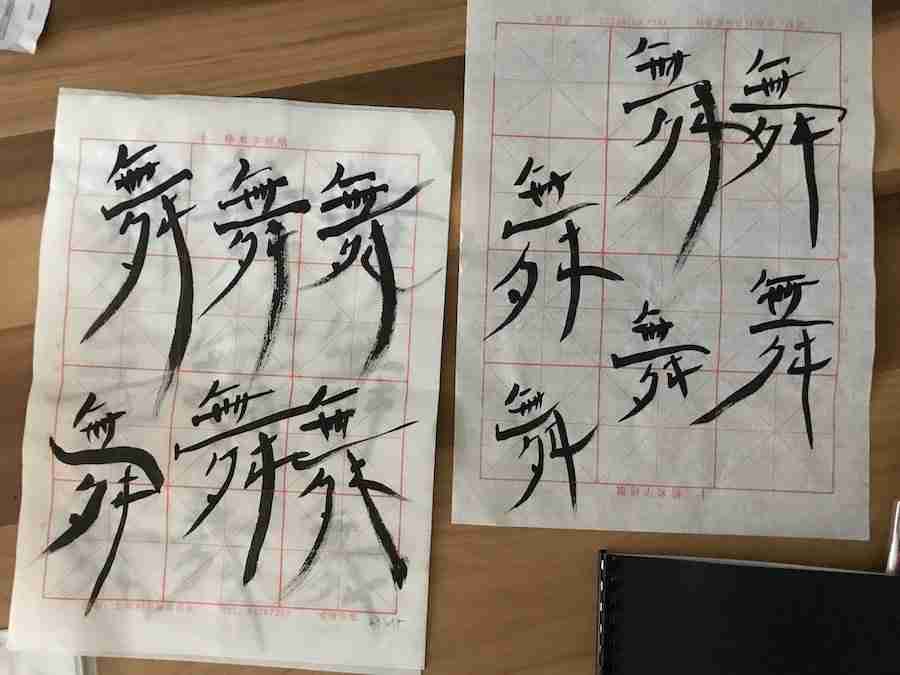 舞舞舞
舞舞舞
舞舞
舞
舞舞
舞